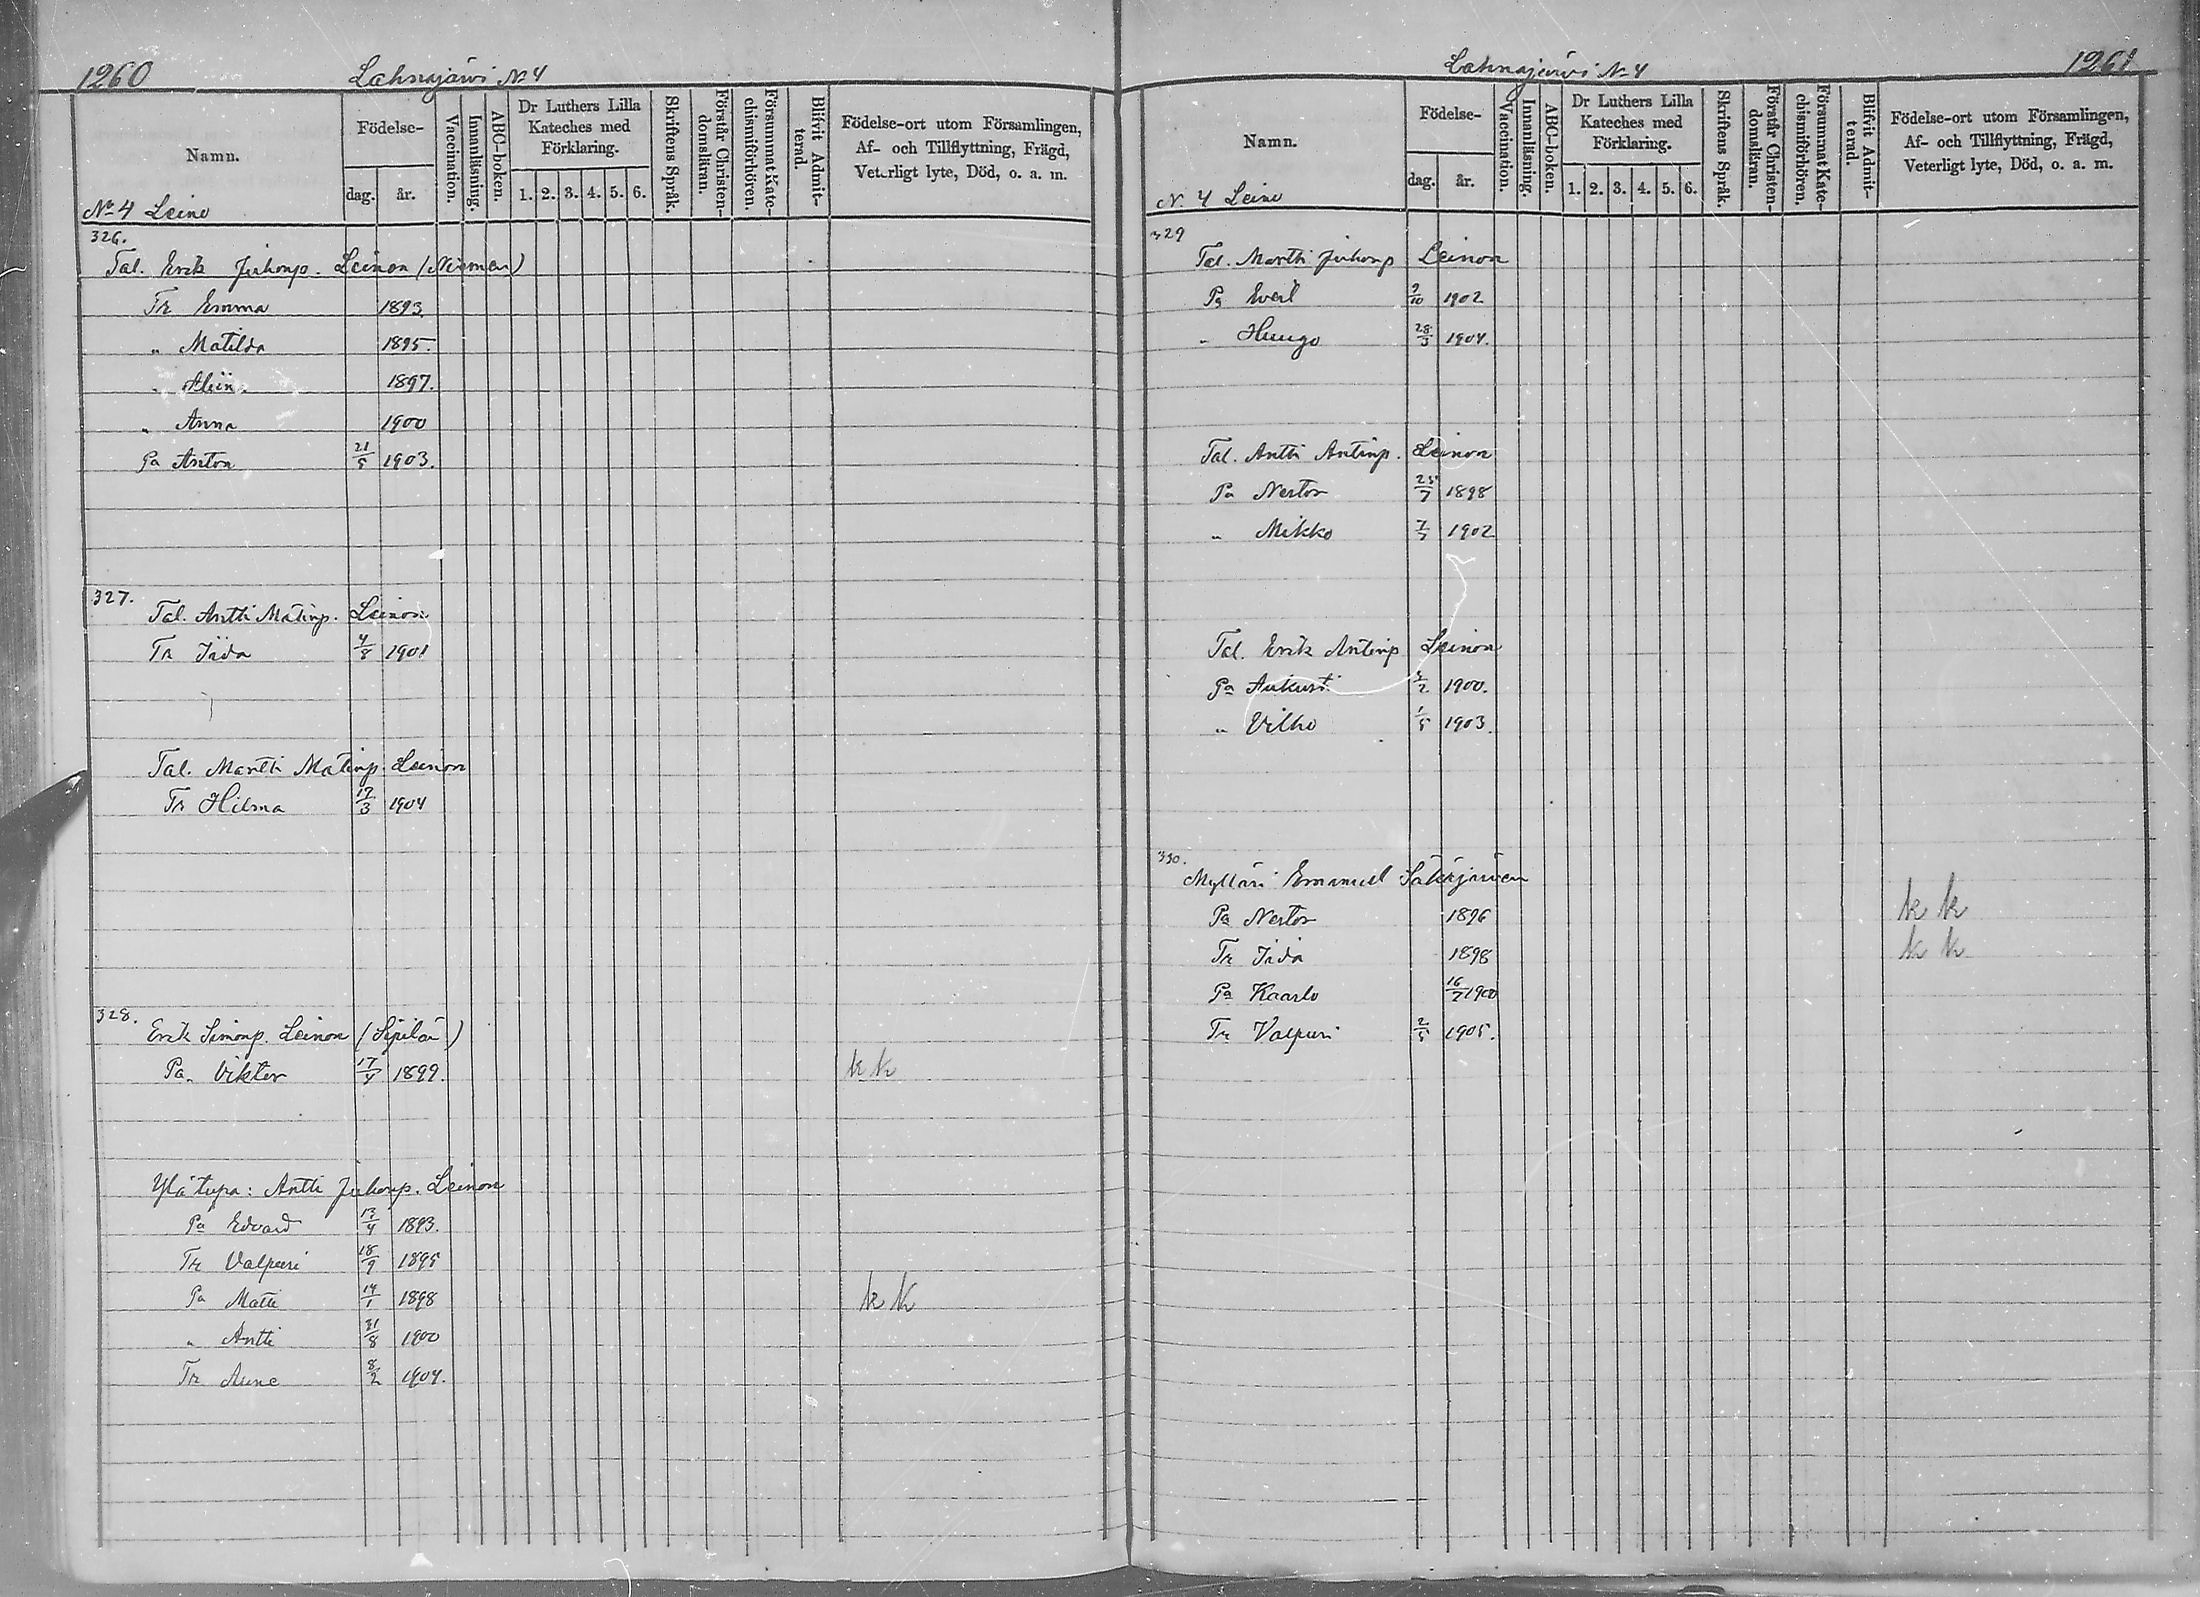 1260 Lahnajärwi No 4
Namn.
Födelse-
dag. år.
Vaccination.
Innanläsning.
ABC-boken.
Dr Luthers Lilla Kateches med Förklaring.
1. 2. 3. 4. 5. 6.
Skriftens Språk.
Förstår Christen-domsläran.
Försummat Kate-chismiförhören.
Blifvit Admit-terad.
Födelse-ort utom Församlingen,
Af- och Tillflyttning, Frägd,
Veterligt lyte, Död, o. a. m.
No 4 Leino
326.
Tal. Erik Juhonp. Leinon
Tr Emma 1893
" Matilda 1895.
" 1897.
" Anna 1900
Pa Anton 21/5 1903.
327.
Tal. Antti Matinp. Leinon
Tr Iida 4/8 1901
Tal. Martti Matinp. Leinon
Tr Hilma 19/3 1904
328.
Erik Simonp. Leinon (Sipilän)
Pa. Viktor 17/4 1899. k k
Ylä tupa: Antti Juhonp. Leinon
Pa Edvard 13/4 1893.
Tr Valpuri 18/9 1895
Pa Matti 14/1 1898 k k
" Antti 31/8 1900
Tr Aune 8/2 1904.
Lahnajärwi No 4 1261
Namn.
Födelse-
dag. år.
Vaccination.
Innanläsning.
ABC-boken.
Dr Luthers Lilla Kateches med Förklaring.
1. 2. 3. 4. 5. 6.
Skriftens Språk.
Förstår Christen-domsläran.
Försummat Kate-chismiförhören.
Blifvit Admit-terad.
Födelse-ort utom Församlingen,
Af- och Tillflyttning, Frägd,
Veterligt lyte, Död, o. a. m.
N. 4 Leino
329
Tal. Martti Juhonp Leinon
Pa 9/10 1902
" Huugo 28/3 1904.
Tal. Antti Antinp. Leinon
Pa Nestor 25/7 1898
" Mikko 7/5 1902
Tal. Erik Antinp Leinon
Pa Aukusti 1900.
" Vilho 1/5 1903.
330.
Mylläri Emanuel
Pa Nestor 1896 k k
Tr Iida 1898 k k
Pa Kaarlo 16/7 1900
Tr Valpuri 2/5 1905.